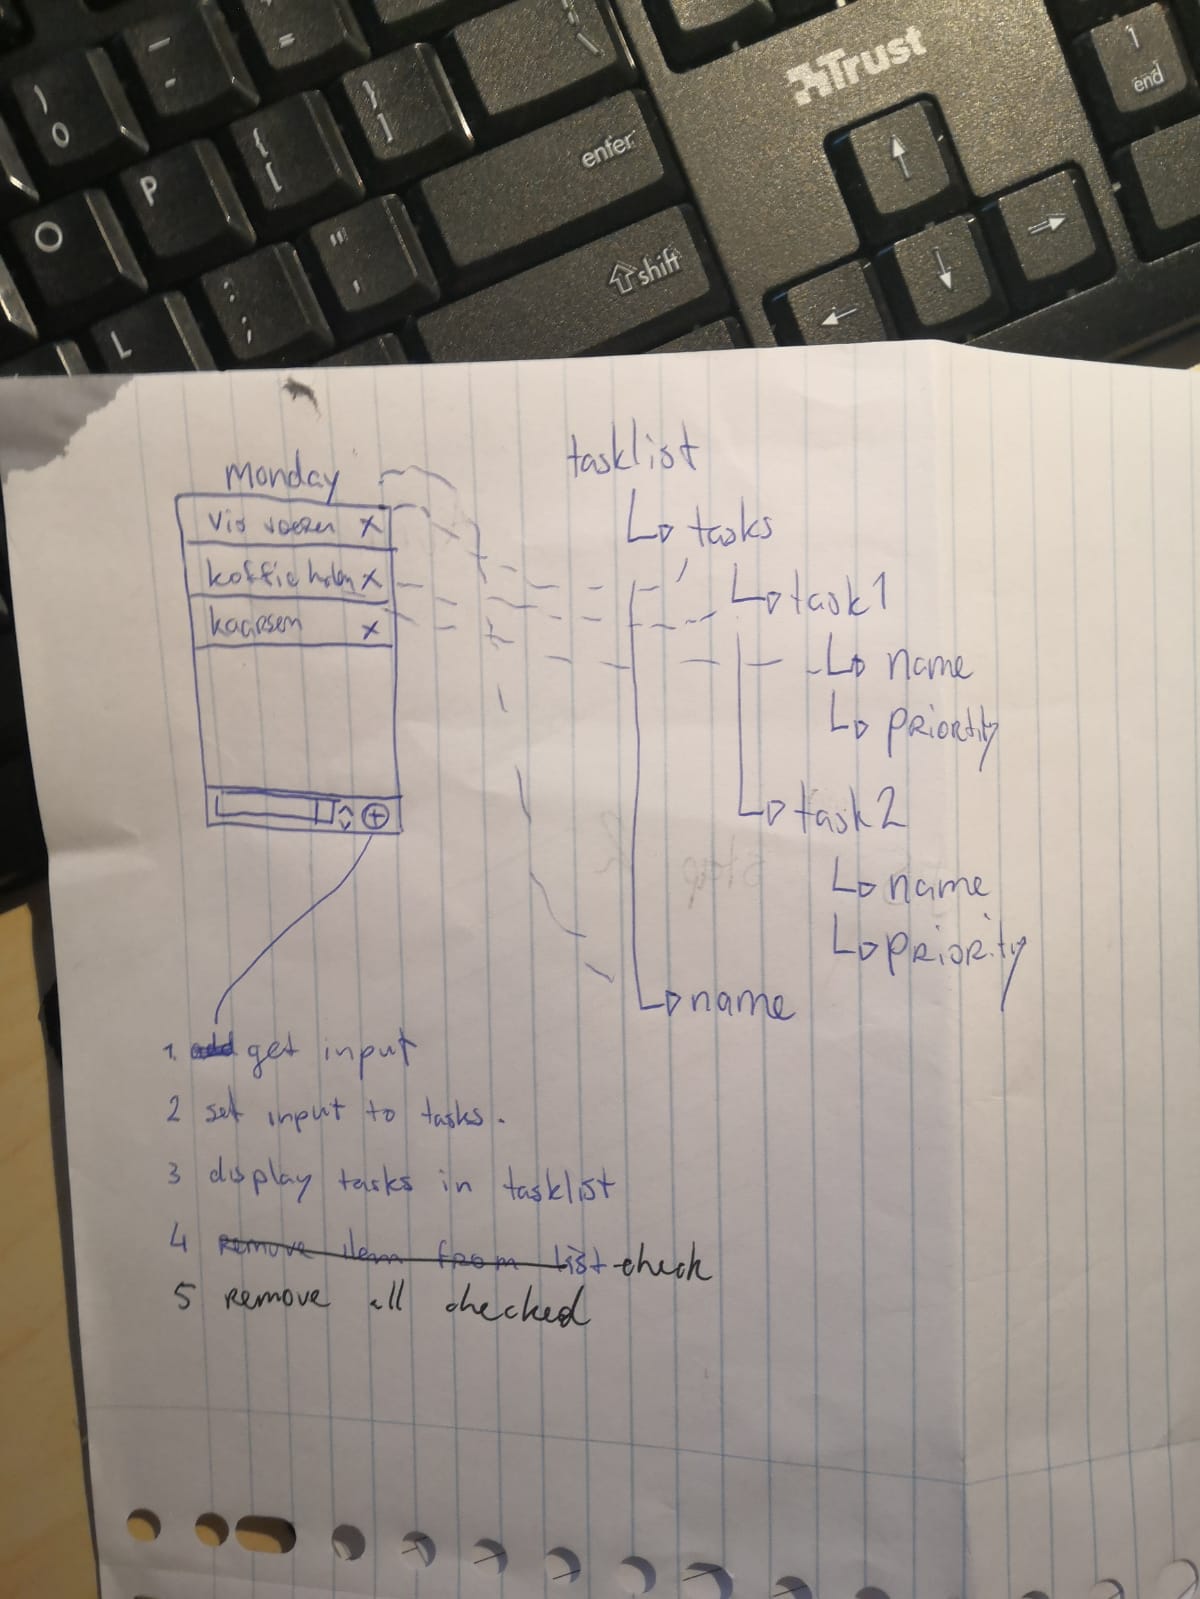 ) 0
_ -
=
\
P
{ [
} ]
enter
Trust
1 end
O
L
: ;
" '
shift
Monday
vis voeren x
koffie halen x
kaarsen x
+
tasklist
tasks
task1
name
priority
task2
name
priority
name
1. add get input
2 set input to tasks.
3 display tasks in tasklist
4 remove item from list check
5 remove all checked